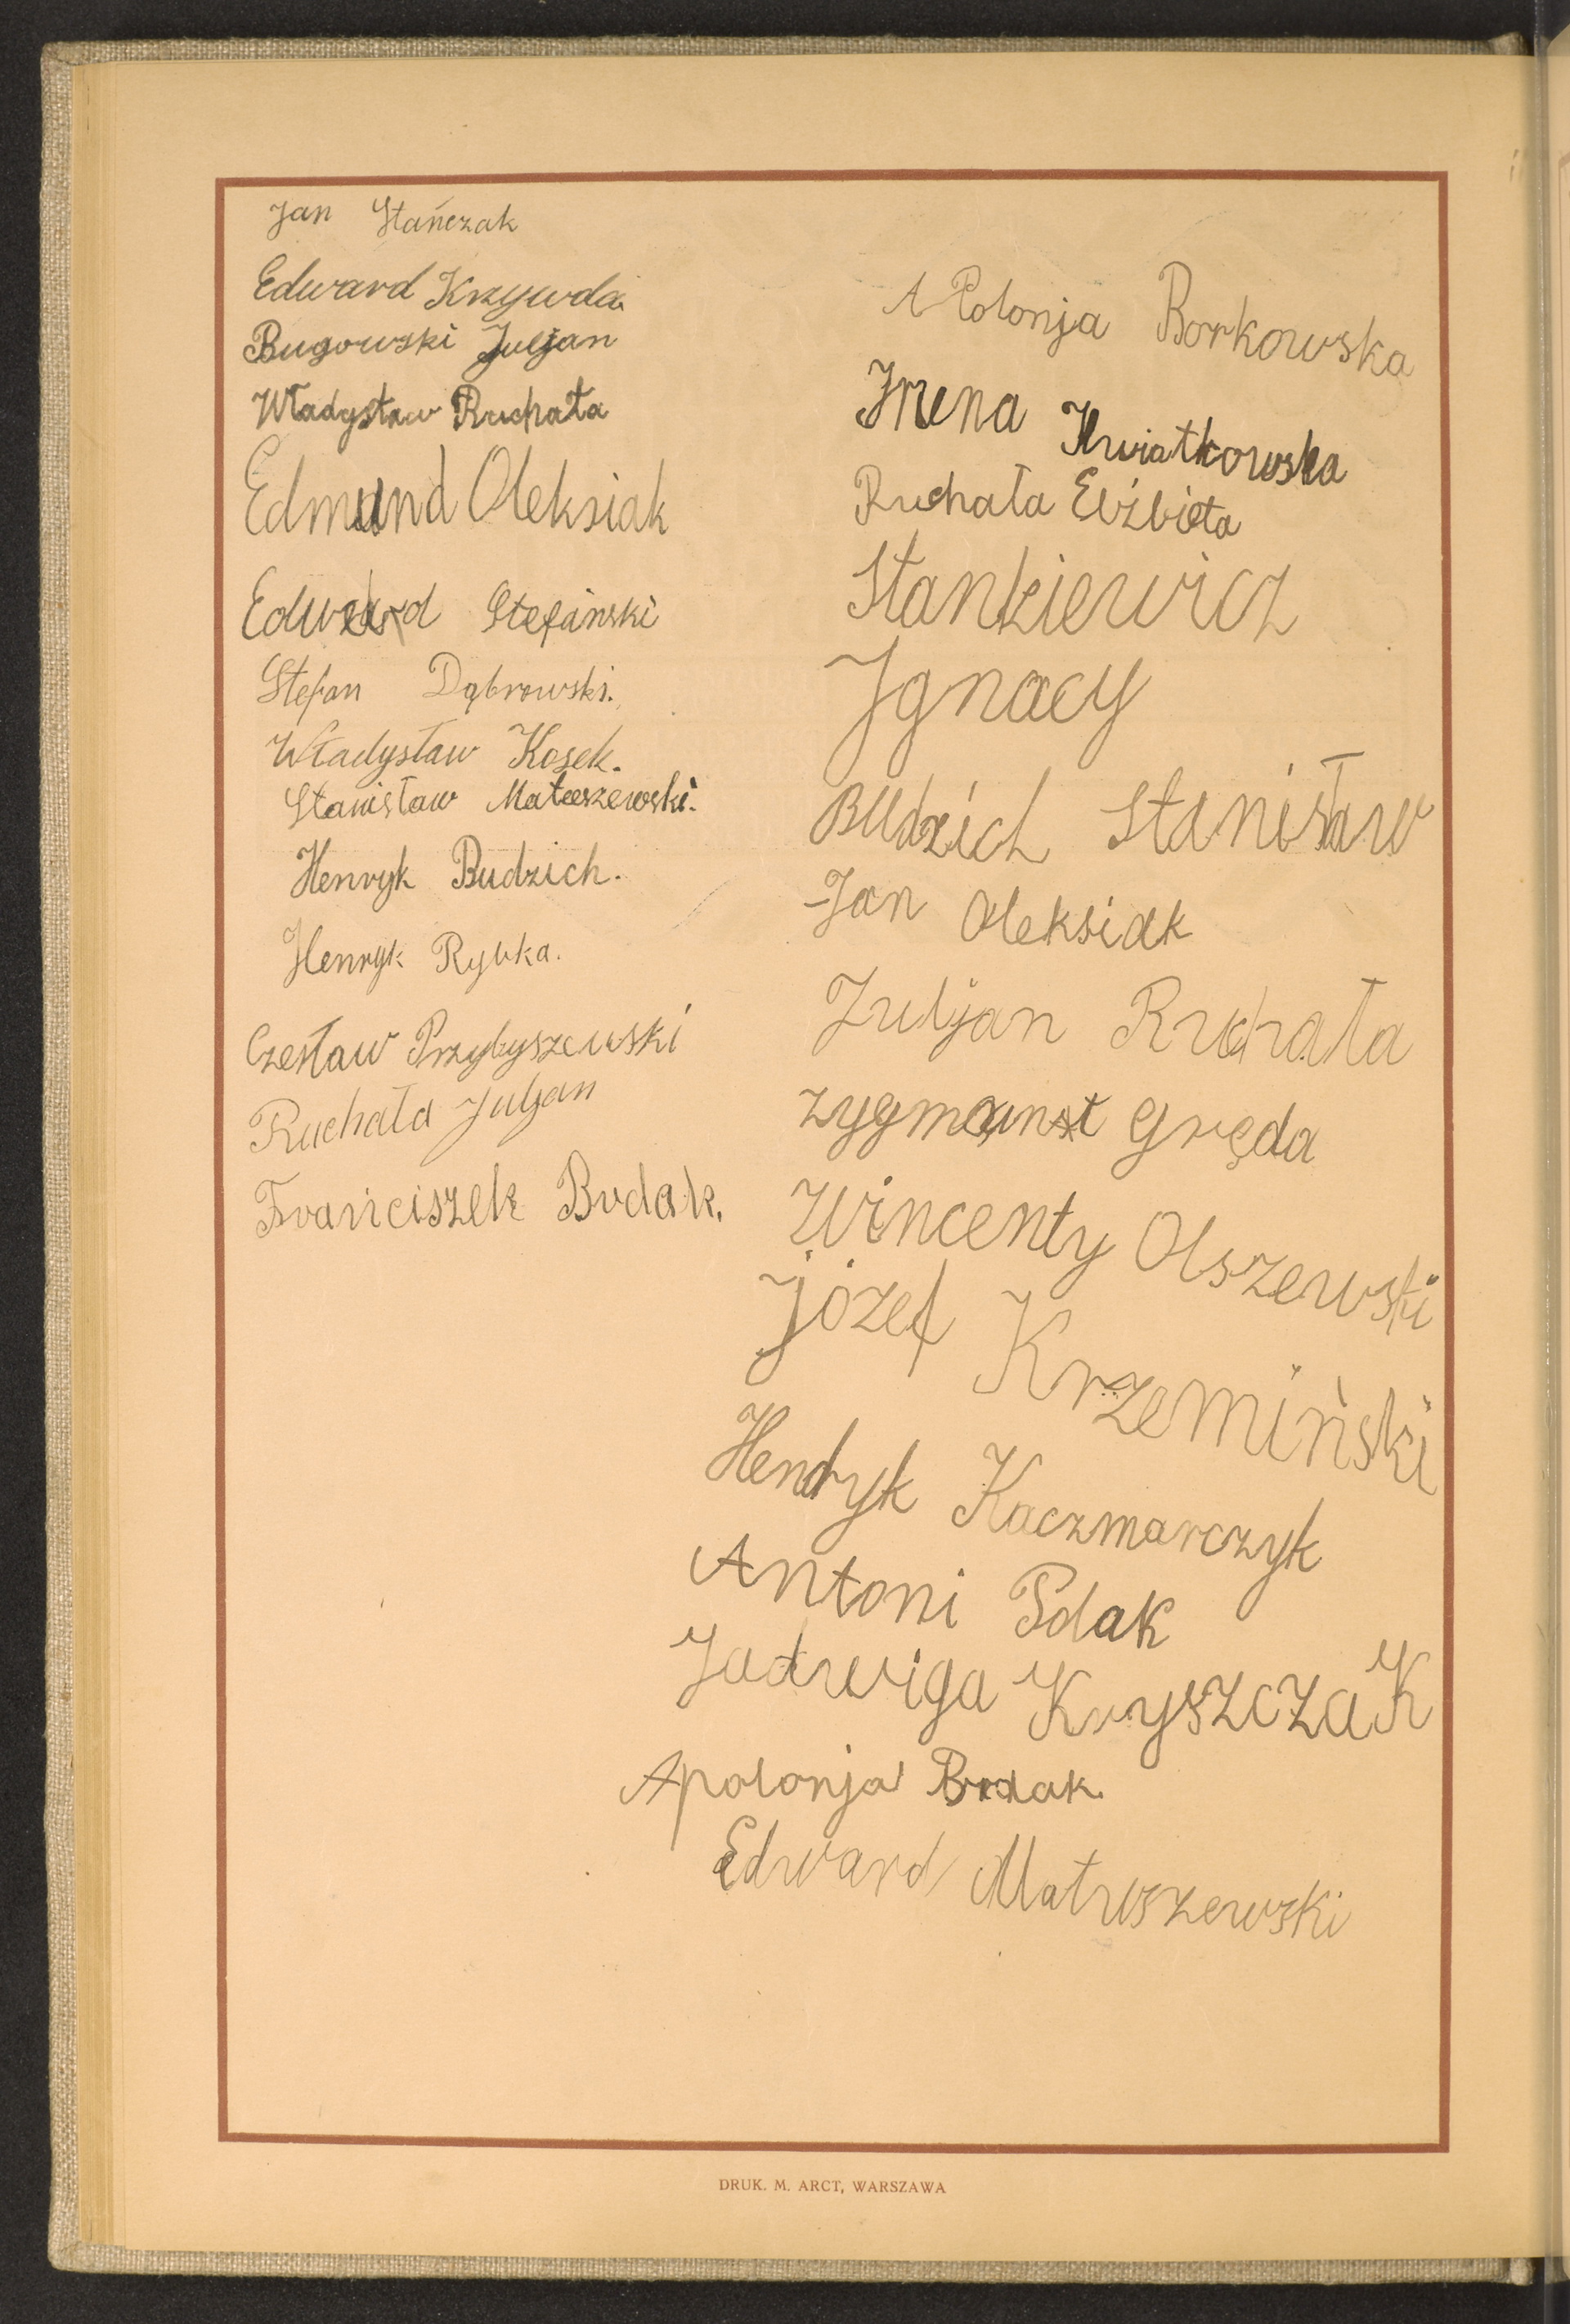 Jan Stańczak
Edward Krzywda
Bugowski Juljan
Władysław Ruchała
Edmund Oleksiak
Edward Stefański
Stefan Dąbrowski.
Władysław Kosek.
Stanisław Mateuszewski.
Henryk Budzich.
Henryk Rybka.
Czesław Przybyszewski
Ruchała Juljan
Franciszek Brdak.
APolonja Borkowska
Irena Kwiatkowska
Ruchała Elżbieta
Stankiewicz
Ignacy
Budzich Stanisław
Jan Oleksiak
Juljan Ruchała
Zygmunt Gręda
Wincenty Olszewski
Józef Krzemiński
Hendryk Kaczmarczyk
Antoni
Jadwiga Kryszczak
Apolonja Brdak.
Edward Matuszewski
DRUK. M. ARCT, WARSZAWA